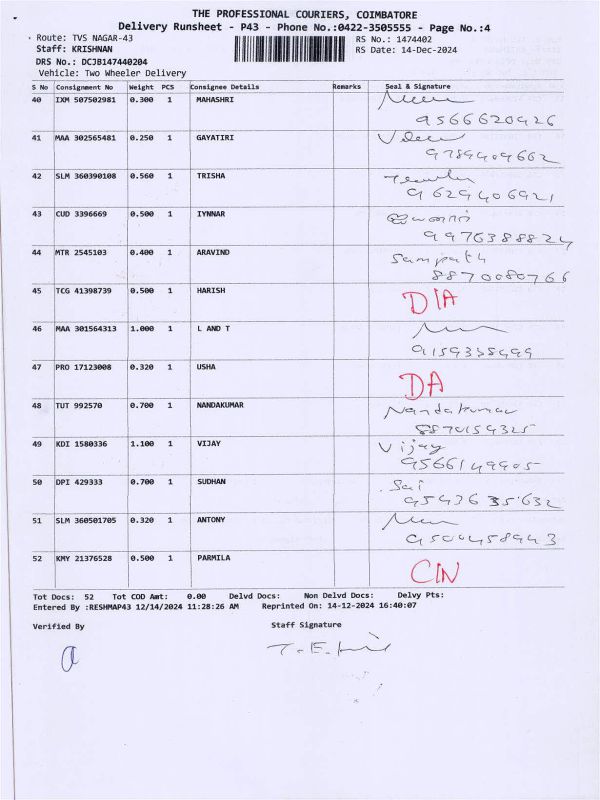 THE PROFESSIONAL COURIERS, COIMBATORE
Delivery Runsheet - P43 - Phone No.:0422-3505555 - Page No.:4
Route: TVS NAGAR-43 RS No.: 1474402
Staff: KRISHNAN RS Date: 14-Dec-2024
DRS No.: DCJB147440204
Vehicle: Two Wheeler Delivery
S No Consignment No Weight PCS Consignee Details Remarks Seal & Signature
40 IXM 507502981 0.300 1 MAHASHRI
9566620926
41 MAA 302565481 0.250 1 GAYATIRI
9789409662
42 SLM 360390108 0.560 1 TRISHA
9629406921
43 CUD 3396669 0.500 1 IYNNAR
9976388824
44 MTR 2545103 0.400 1 ARAVIND Sampath
8870080766
45 TCG 41398739 0.500 1 HARISH
DIA
46 MAA 301564313 1.000 1 L AND T
9159335499
47 PRO 17123008 0.320 1 USHA
DA
48 TUT 992570 0.700 1 NANDAKUMAR Nandakumar
8870159325
49 KDI 1580336 1.100 1 VIJAY Vijay
9566149905
50 DPI 429333 0.700 1 SUDHAN Sai
9543635632
51 SLM 360501705 0.320 1 ANTONY
9500458943
52 KMY 21376528 0.500 1 PARMILA
CIN
Tot Docs: 52 Tot COD Amt: 0.00 Delvd Docs: Non Delvd Docs: Delvy Pts:
Entered By :RESHMAP43 12/14/2024 11:28:26 AM Reprinted On: 14-12-2024 16:40:07
Verified By Staff Signature